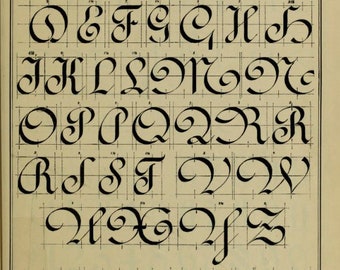 D E F G G H H
I K L L M M
O P P Q Q R R
R S S T V W
U X Y Z